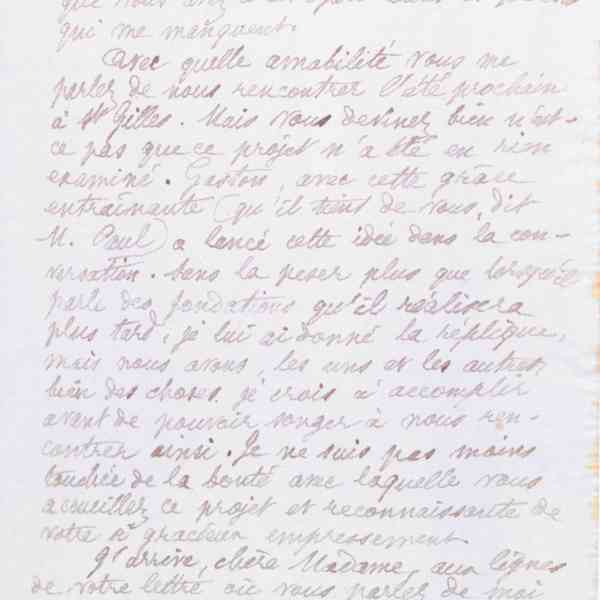 que vous
qui me manquent.
Avec quelle amabilité vous me
parlez de nous rencontrer l'été prochain
à St Gilles. Mais vous devinez bien n'est-
ce pas que ce projet n'a été en rien
examiné. Gaston, avec cette grâce
entraînante (qu'il tient de vous, dit
M. Paul) a lancé cette idée dans la con-
versation. Sans la peser plus que lorsqu'il
parle des fondations qu'il réalisera
plus tard, je lui ai donné la réplique,
mais nous avons, les uns et les autres,
bien des choses, je crois à accomplir
avant de pouvoir songer à nous ren-
contrer ainsi. Je ne suis pas moins
touchée de la bonté avec laquelle vous
accueillez ce projet et reconnaissante de
votre si gracieux empressement.
J'arrive, chère Madame, aux lignes
de votre lettre où vous parlez de moi